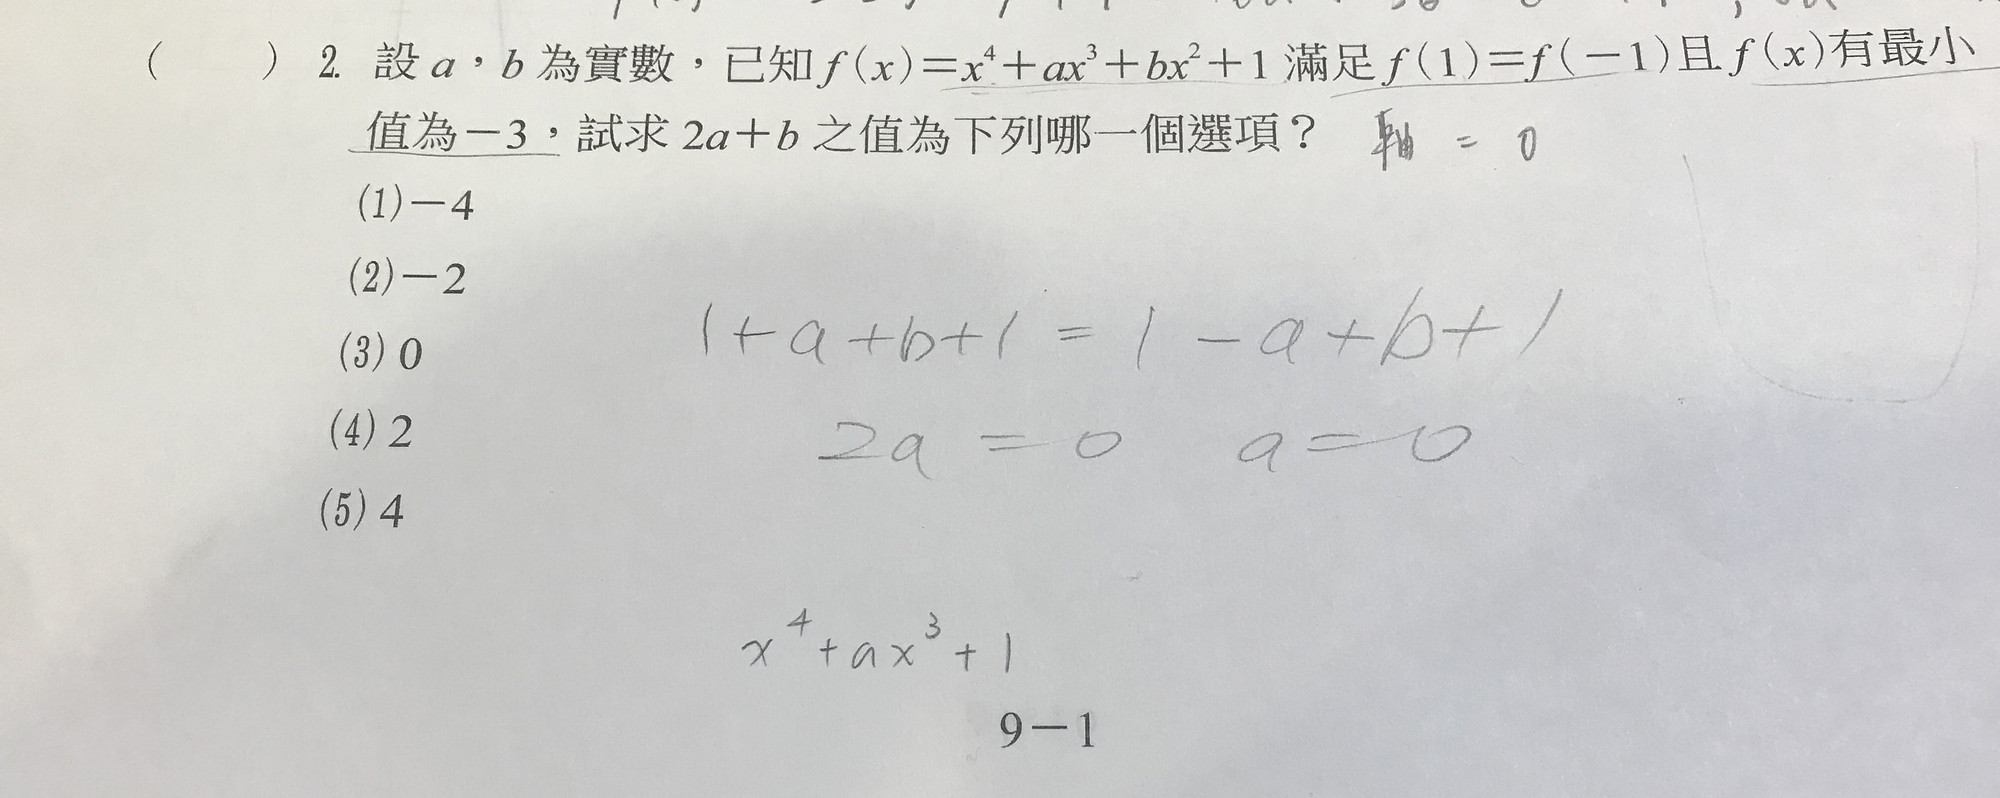 ( ) 2. 設 a，b 為實數，已知 f(x)=x⁴+ax³+bx²+1 滿足 f(1)=f(-1)且 f(x)有最小
值為-3，試求 2a+b 之值為下列哪一個選項？ 軸 = 0
(1)-4
(2)-2
(3) 0
(4) 2
(5) 4
1+a+b+1 = 1-a+b+1
2a = 0 a=0
x⁴+ax³+1
9-1